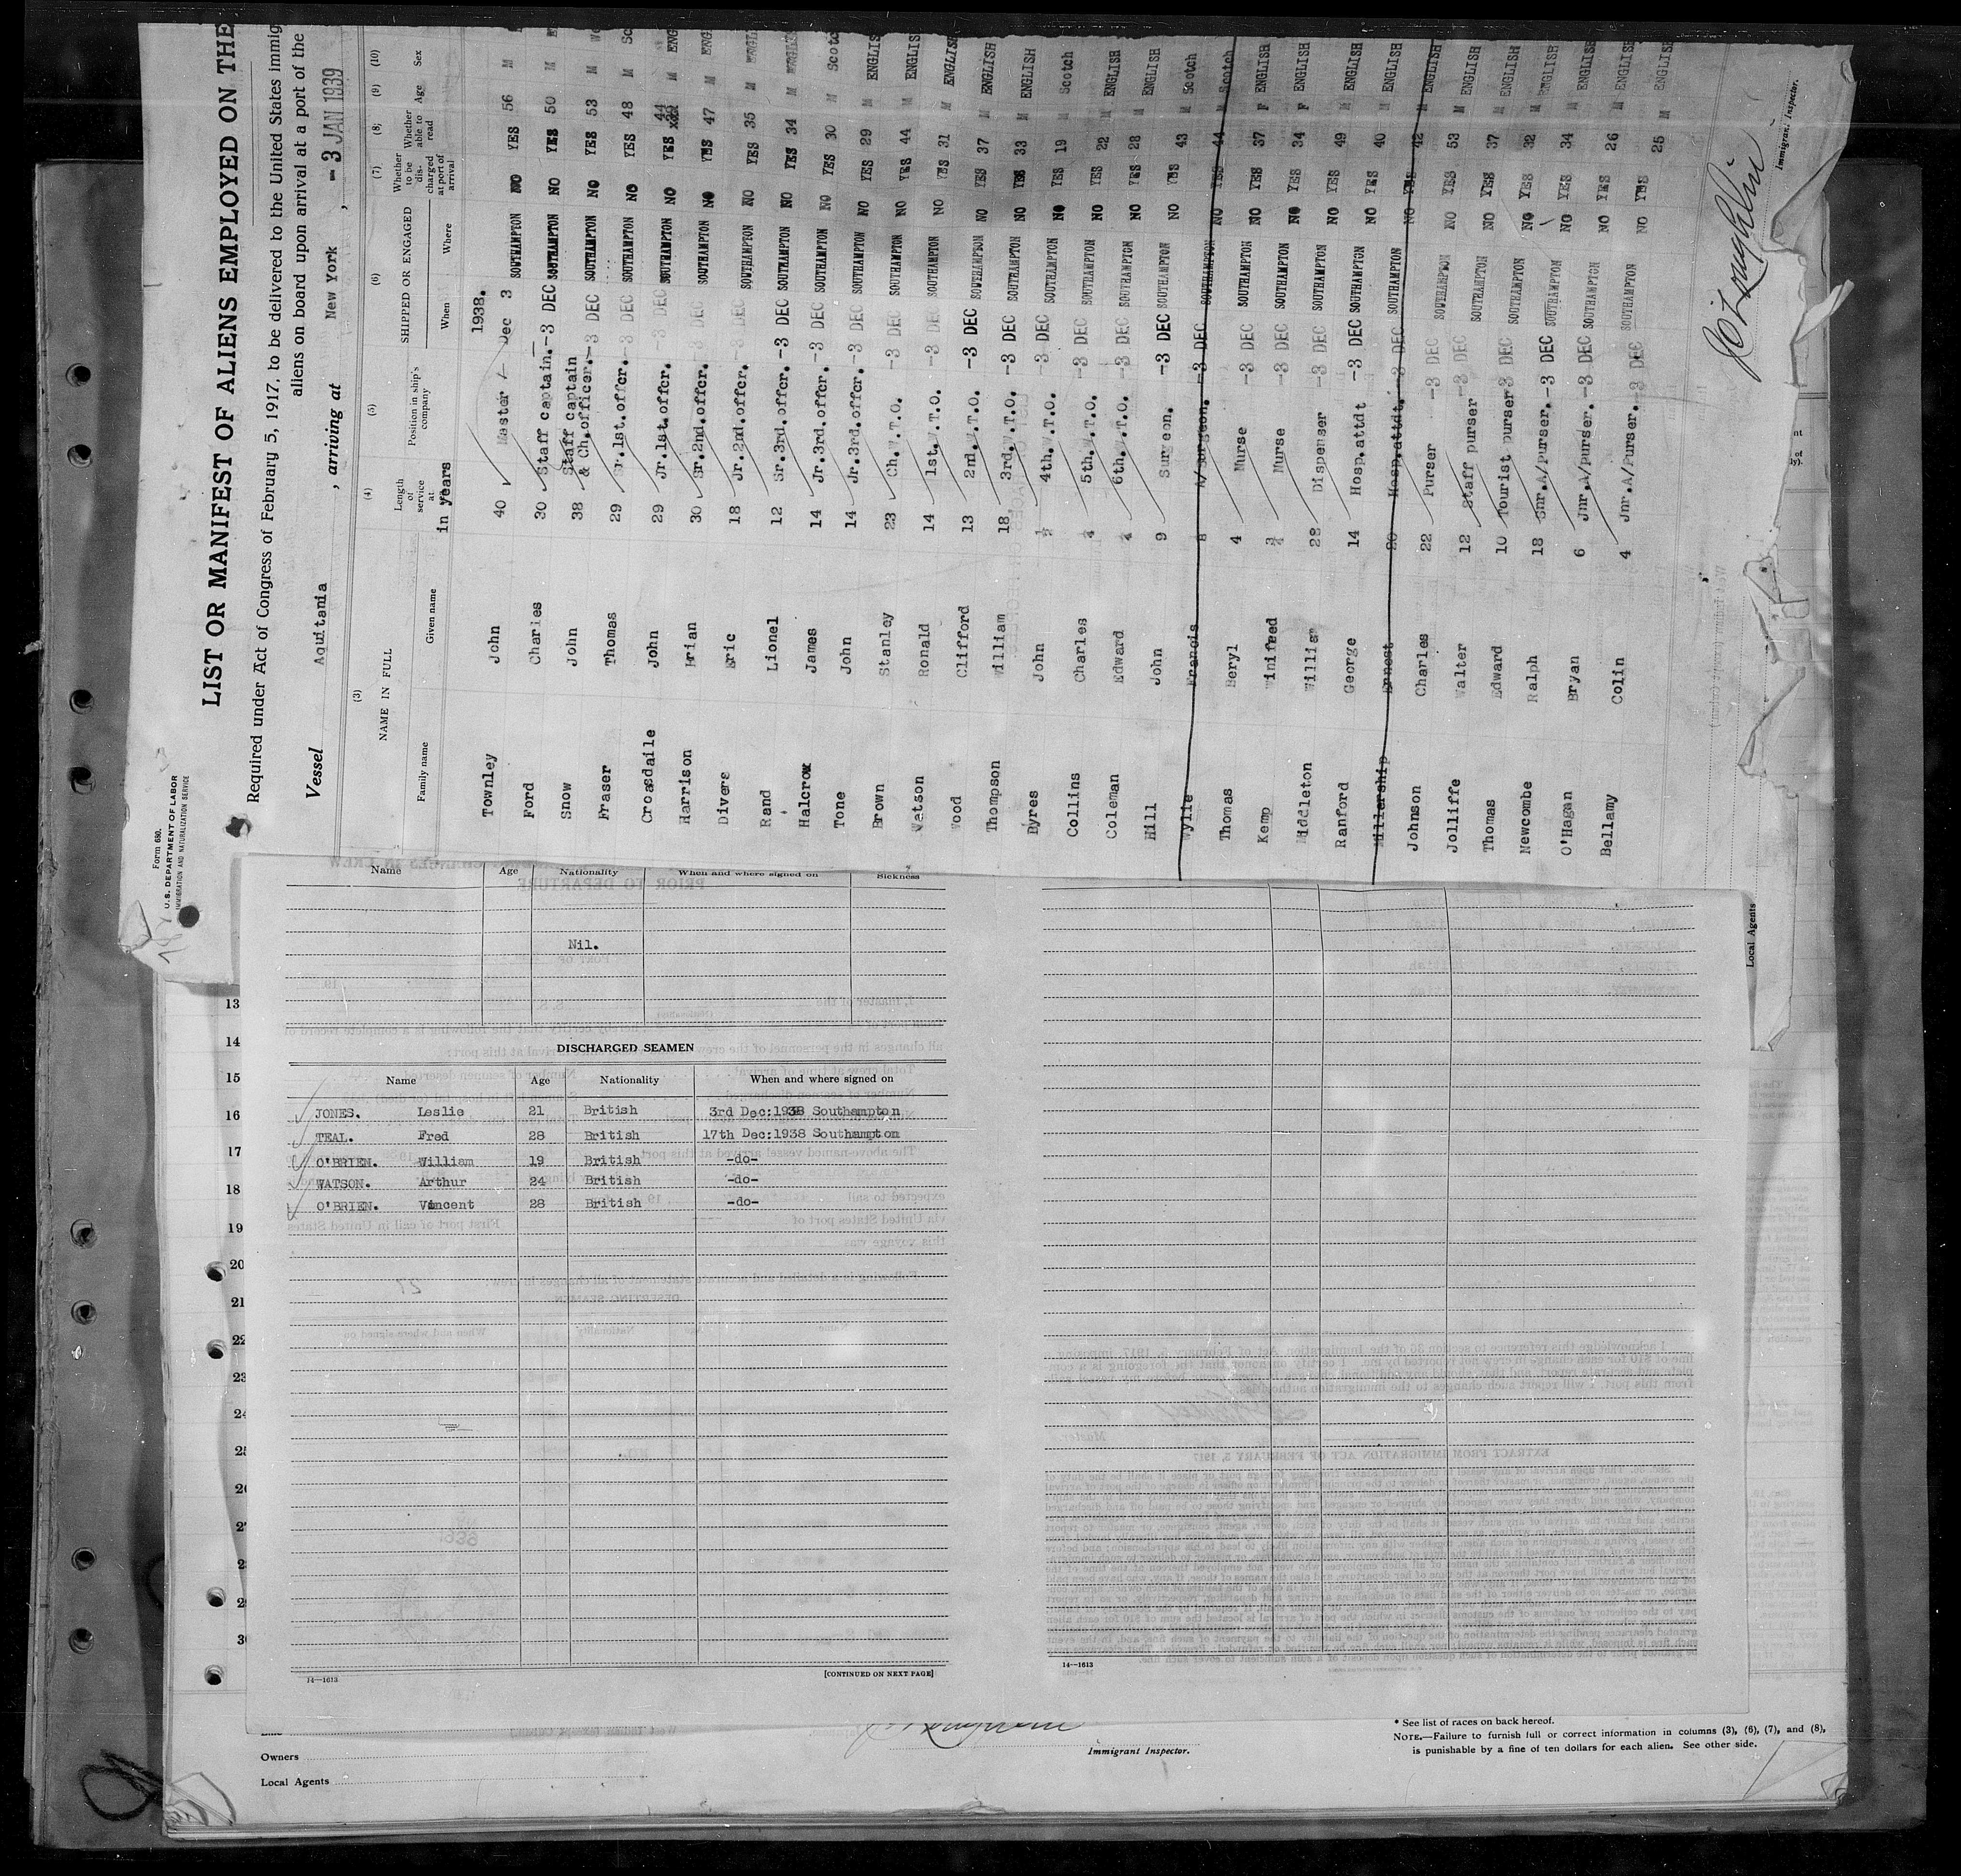 Form 680.
U.S. DEPARTMENT OF LABOR
IMMIGRATION AND NATURALIZATION SERVICE
LIST OR MANIFEST OF ALIENS EMPLOYED ON THE
Required under Act of Congress of February 5, 1917, to be delivered to the United States immig
aliens on board upon arrival at a port of the
Vessel Aquitania , arriving at New York , -3 JAN 1939
(3) (4) (5) (6) (7) (8) (9) (10)
NAME IN FULL Length of service at in years Position in ship's company SHIPPED OR ENGAGED Whether to be discharged at port of arrival Whether able to read Age Sex
Family name Given name When Where
1938.
Townley John 40 Master Dec 3 SOUTHAMPTON NO YES 56 M
Ford Charles 30 Staff captain. -3 DEC SOUTHAMPTON NO YES 50 M
Snow John 38 Staff captain & Ch.officer. -3 DEC SOUTHAMPTON NO YES 53 M
Fraser Thomas 29 Sr.1st.offcr. -3 DEC SOUTHAMPTON NO YES 48 M Sc
Croasdaile John 29 Jr.1st.offcr. -3 DEC SOUTHAMPTON NO YES 44 M ENG
Harrison Brian 30 Sr.2nd.offcr. -3 DEC SOUTHAMPTON NO YES 47 M ENG
Divers Eric 18 Jr.2nd.offcr. -3 DEC SOUTHAMPTON NO YES 35 M ENGLI
Rand Lionel 12 Sr.3rd.offcr. -3 DEC SOUTHAMPTON NO YES 34 M ENGLI
Halcrow James 14 Jr.3rd.offcr. -3 DEC SOUTHAMPTON NO YES 30 M Scotc
Tone John 14 Jr.3rd.offcr. -3 DEC SOUTHAMPTON NO YES 29 M ENGLIS
Brown Stanley 23 Ch.W.T.O. -3 DEC SOUTHAMPTON NO YES 44 M ENGLIS
Watson Ronald 14 1st.W.T.O. -3 DEC SOUTHAMPTON NO YES 31 M ENGLISH
Wood Clifford 13 2nd.W.T.O. -3 DEC SOUTHAMPTON NO YES 37 M ENGLISH
Thompson William 18 3rd.W.T.O. -3 DEC SOUTHAMPTON NO YES 33 M ENGLISH
Byres John ½ 4th.W.T.O. -3 DEC SOUTHAMPTON NO YES 19 M Scotch
Collins Charles 5th.W.T.O. -3 DEC SOUTHAMPTON NO YES 22 M ENGLISH
Coleman Edward 6th.W.T.O. -3 DEC SOUTHAMPTON NO YES 28 M ENGLISH
Hill John 9 Surgeon. -3 DEC SOUTHAMPTON NO YES 43 M Scotch
Wylie Francis 8 A/surgeon. -3 DEC SOUTHAMPTON NO YES 44 M Scotch
Thomas Beryl 4 Nurse -3 DEC SOUTHAMPTON NO YES 37 F ENGLISH
Kemp Winifred ¾ Nurse -3 DEC SOUTHAMPTON NO YES 34 F ENGLISH
Middleton William 28 Dispenser -3 DEC SOUTHAMPTON NO YES 49 M ENGLISH
Ranford George 14 Hosp.attdt -3 DEC SOUTHAMPTON NO YES 40 M ENGLISH
Millership Ernest 20 Hosp.attdt. -3 DEC SOUTHAMPTON NO YES 42 M ENGLISH
Johnson Charles 22 Purser -3 DEC SOUTHAMPTON NO YES 53 M ENGLISH
Jolliffe Walter 12 Staff purser -3 DEC SOUTHAMPTON NO YES 37 M ENGLISH
Thomas Edward 10 Tourist purser -3 DEC SOUTHAMPTON NO YES 32 M ENGLISH
Newcombe Ralph 18 Snr.A/Purser. -3 DEC SOUTHAMPTON NO YES 34 M ENGLISH
O'Hagan Bryan 6 Jnr.A/purser. -3 DEC SOUTHAMPTON NO YES 26 M ENGLISH
Bellamy Colin 4 Jnr.A/Purser. -3 DEC SOUTHAMPTON NO YES 25 M ENGLISH
Immigrant Inspector.
Local Agents
Name Age Nationality When and where signed on Sickness
Nil.
DISCHARGED SEAMEN
Name Age Nationality When and where signed on
JONES. Leslie 21 British 3rd Dec:1938 Southampton
TEAL. Fred 28 British 17th Dec:1938 Southampton
O'BRIEN. William 19 British -do-
WATSON. Arthur 24 British -do-
O'BRIEN. Vincent 28 British -do-
14—1613 [CONTINUED ON NEXT PAGE]
14—1613
13
14
15
16
17
18
19
20
21
22
23
24
25
Owners
Local Agents
Immigrant Inspector.
* See list of races on back hereof.
NOTE.—Failure to furnish full or correct information in columns (3), (6), (7), and (8),
is punishable by a fine of ten dollars for each alien. See other side.